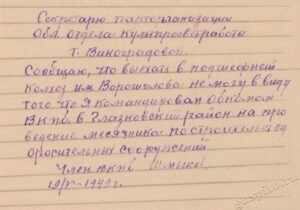 Секретарю парторганизации
Обл. отдела Культпросветработы
Т. Виноградовой.
Сообщаю, что выехать в подшефный
Колхоз им. Ворошилова не могу в виду
того что Я командирован Обкомом
ВКПб в Глазковский район на про
ведение месячника по строительству
оросительных сооружений
Член ВКПб
19/V-1949 г.